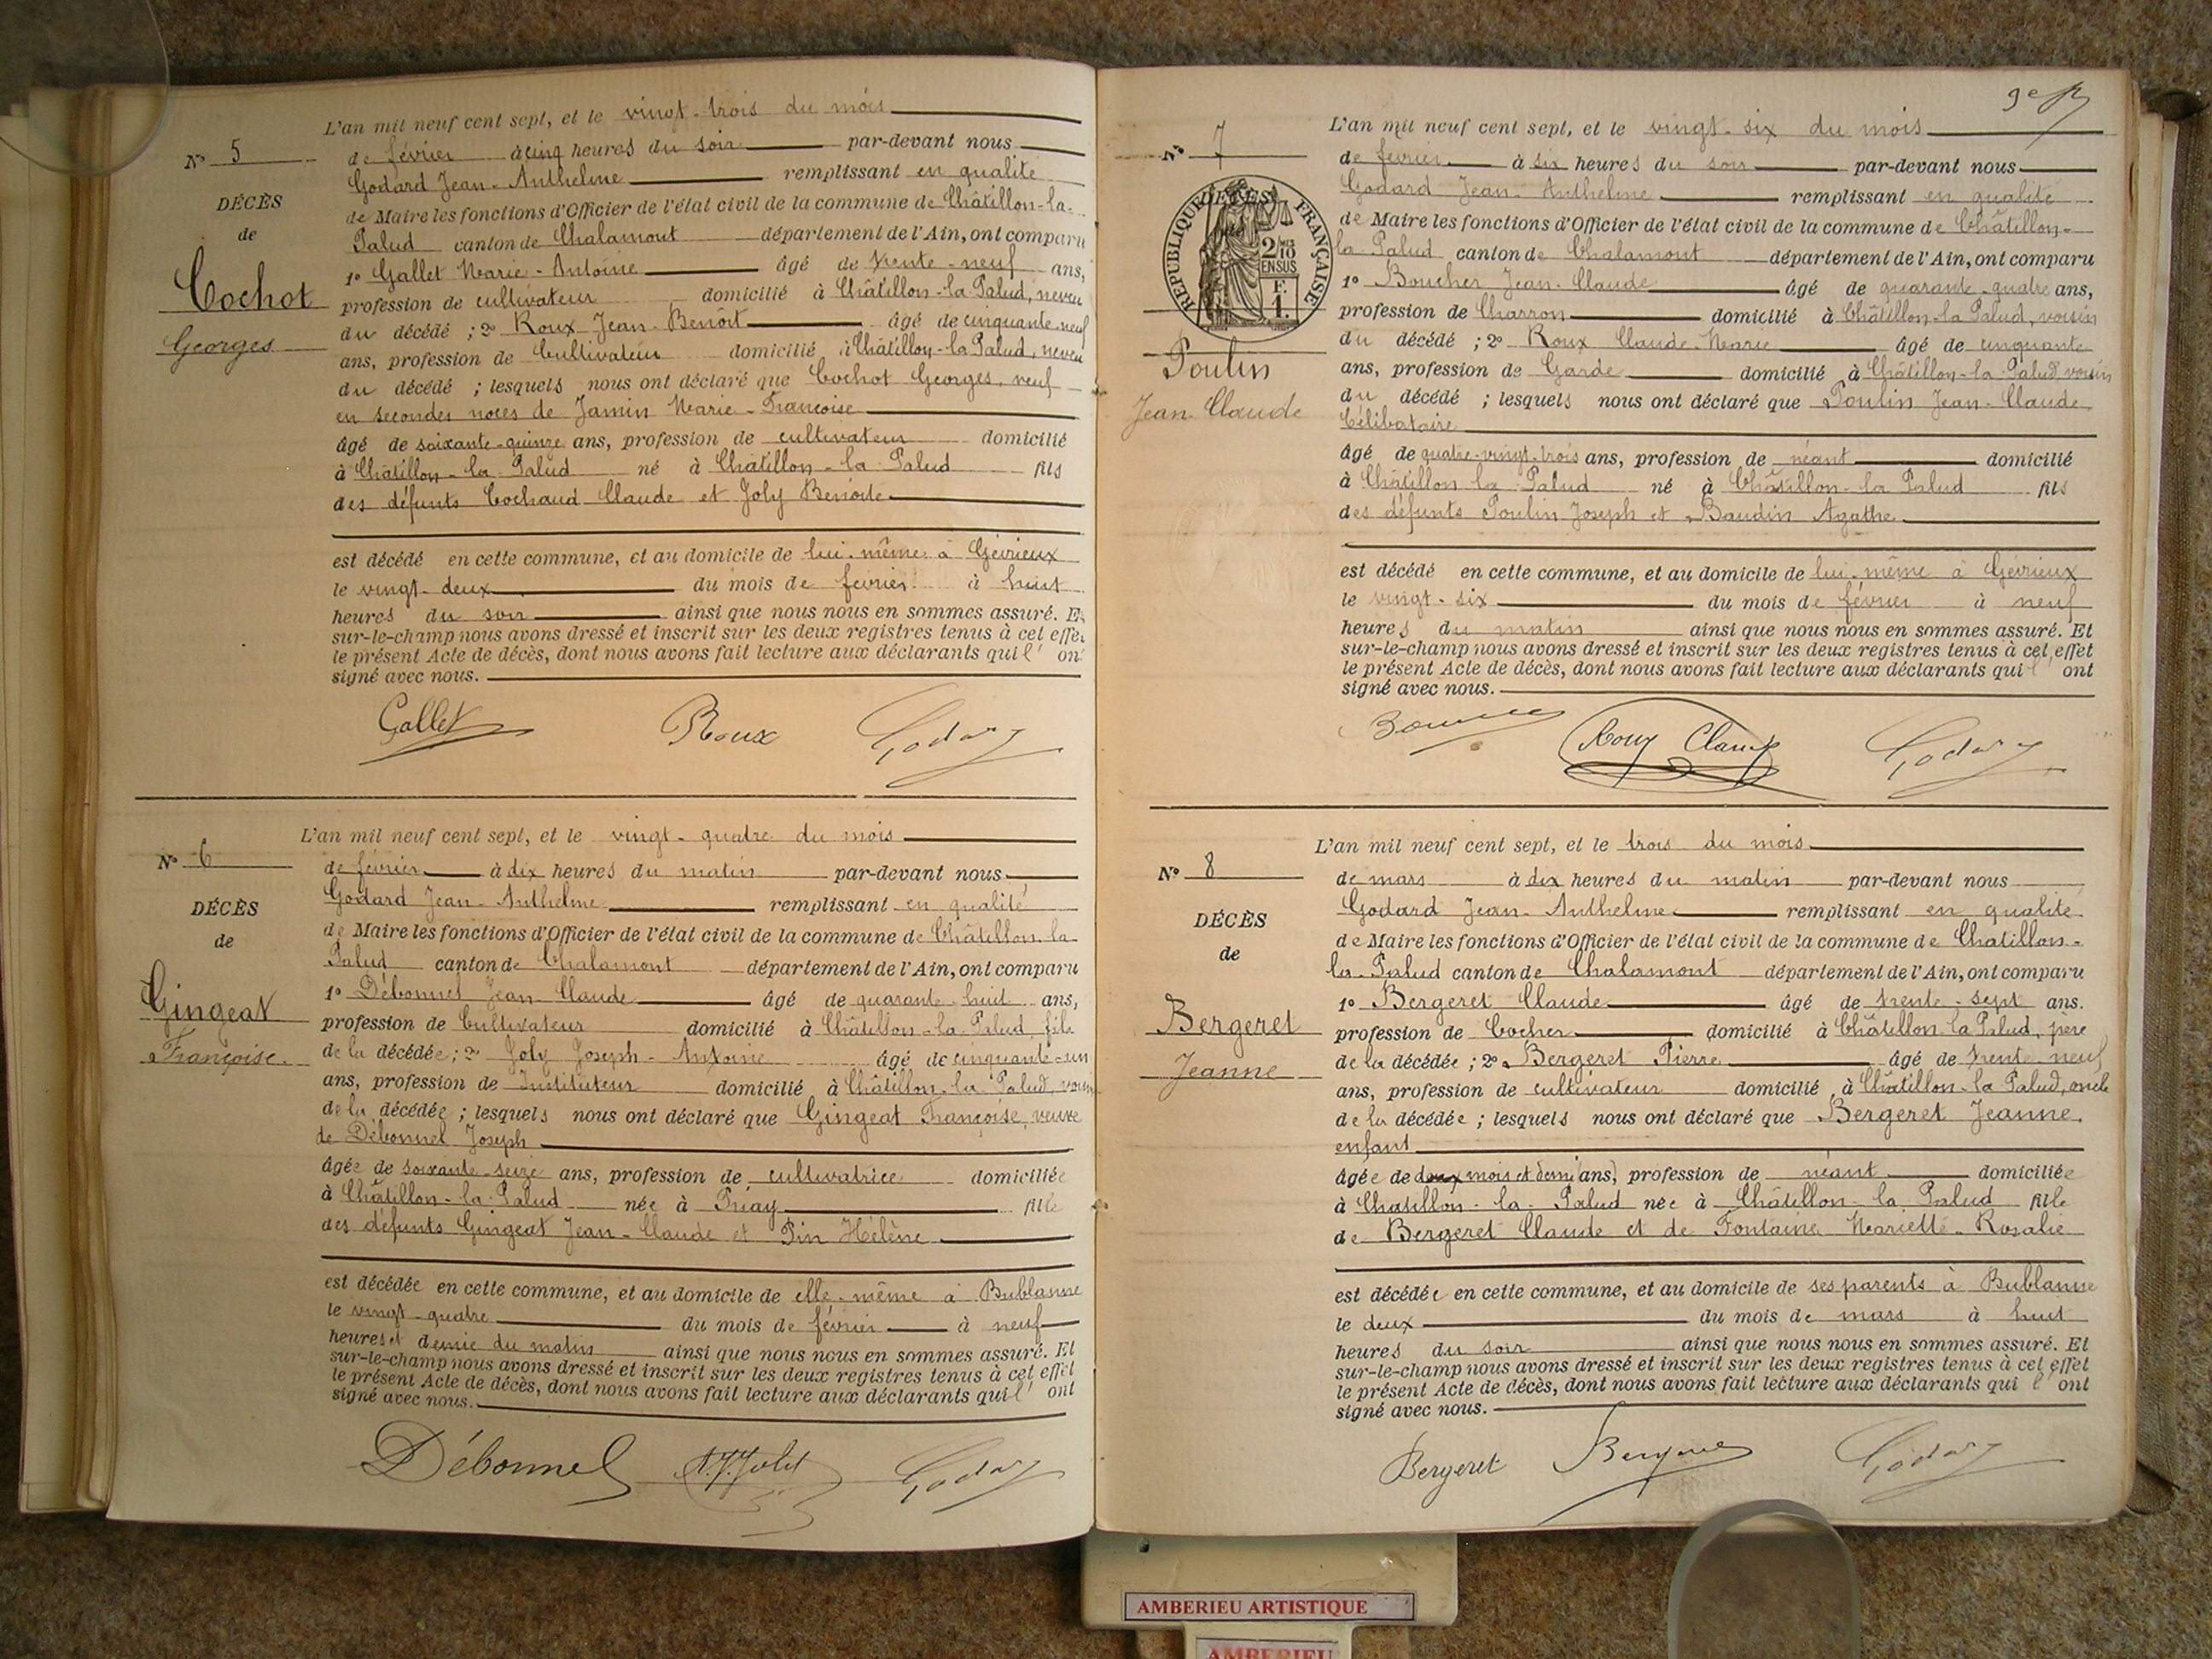 L'an mil neuf cent sept, et le vingt-trois du mois
N° 5
de février à cinq heures du soir par-devant nous
Godard Jean-Anthelme remplissant en qualité
DÉCÈS
de Maire les fonctions d'Officier de l'état civil de la commune de Châtillon-la-
de
Palud canton de Chalamont département de l'Ain, ont comparu
1° Gallet Marie-Antoine âgé de trente-neuf ans,
Cochot
profession de cultivateur domicilié à Châtillon-la Palud, neveu
du décédé ; 2° Roux Jean-Benoit âgé de cinquante-neuf
Georges
ans, profession de Cultivateur domicilié à Châtillon-la Palud, neveu
du décédé ; lesquels nous ont déclaré que Cochot Georges, veuf
en secondes noces de Jamin Marie-Françoise
âgé de soixante-quinze ans, profession de cultivateur domicilié
à Châtillon-la-Palud né à Châtillon-la-Palud fils
des défunts Cochaud Claude et Joly Benoite
est décédé en cette commune, et au domicile de lui-même à Gévrieux
le vingt-deux du mois de février à huit
heures du soir ainsi que nous nous en sommes assuré. Et
sur-le-champ nous avons dressé et inscrit sur les deux registres tenus à cet effet
le présent Acte de décès, dont nous avons fait lecture aux déclarants qui l' ont
signé avec nous.
Gallet Roux Godard
L'an mil neuf cent sept, et le vingt-quatre du mois
N° 6
de février à dix heures du matin par-devant nous
Godard Jean-Anthelme remplissant en qualité
DÉCÈS
de Maire les fonctions d'Officier de l'état civil de la commune de Châtillon la
de
Palud canton de Chalamont département de l'Ain, ont comparu
1° Débonnel Jean-Claude âgé de quarante-huit ans,
Gingeat
profession de Cultivateur domicilié à Châtillon-la-Palud fils
Françoise
de la décédée ; 2° Joly Joseph-Antoine âgé de cinquante-un
ans, profession de Instituteur domicilié à Châtillon-la Palud, voisin
de la décédée ; lesquels nous ont déclaré que Gingeat Françoise, veuve
de Débonnel Joseph
âgée de soixante-seize ans, profession de cultivatrice domiciliée
à Châtillon-la-Palud née à Priay fille
des défunts Gingeat Jean-Claude et Pin Hélène
est décédée en cette commune, et au domicile de elle-même à Bublanne
le vingt-quatre du mois de février à neuf
heures et demie du matin ainsi que nous nous en sommes assuré. Et
sur-le-champ nous avons dressé et inscrit sur les deux registres tenus à cet effet
le présent Acte de décès, dont nous avons fait lecture aux déclarants qui l' ont
signé avec nous.
Débonnel Godard
9e
L'an mil neuf cent sept, et le vingt-six du mois
N° 7
de février à six heures du soir par-devant nous
Godard Jean-Anthelme remplissant en qualité
RÉPUBLIQUE FRANÇAISE
2/10
EN SUS
F.
1.
de Maire les fonctions d'Officier de l'état civil de la commune de Châtillon-
la-Palud canton de Chalamont département de l'Ain, ont comparu
1° Boucher Jean-Claude âgé de quarante-quatre ans,
profession de Charron domicilié à Châtillon-la Palud, voisin
du décédé ; 2° Roux Claude-Marie âgé de cinquante
Poulin
ans, profession de Garde domicilié à Châtillon-la-Palud, voisin
Jean-Claude
du décédé ; lesquels nous ont déclaré que Poulin Jean-Claude
Célibataire
âgé de quatre-vingt-trois ans, profession de néant domicilié
à Châtillon la Palud né à Châtillon-la Palud fils
des défunts Poulin Joseph et Baudin Agathe
est décédé en cette commune, et au domicile de lui-même à Gévrieux
le vingt-six du mois de février à neuf
heures du matin ainsi que nous nous en sommes assuré. Et
sur-le-champ nous avons dressé et inscrit sur les deux registres tenus à cet effet
le présent Acte de décès, dont nous avons fait lecture aux déclarants qui l' ont
signé avec nous.
Roux Claude Godard
L'an mil neuf cent sept, et le trois du mois
N° 8
de mars à dix heures du matin par-devant nous
Godard Jean-Anthelme remplissant en qualité
DÉCÈS
de Maire les fonctions d'Officier de l'état civil de la commune de Chatillon-
de
la-Palud canton de Chalamont département de l'Ain, ont comparu
1° Bergeret Claude âgé de trente-sept ans.
Bergeret
profession de Cocher domicilié à Châtillon-la Palud, père
de la décédée ; 2° Bergeret Pierre âgé de trente-neuf
Jeanne
ans, profession de cultivateur domicilié à Châtillon-la Palud, oncle
de la décédée ; lesquels nous ont déclaré que Bergeret Jeanne,
enfant
âgée de deux mois et demi (ans) profession de néant domiciliée
à Chatillon-la-Palud née à Châtillon-la Palud fille
de Bergeret Claude et de Fontaine Mariette-Rosalie
est décédée en cette commune, et au domicile de ses parents à Bublanne
le deux du mois de mars à huit
heures du soir ainsi que nous nous en sommes assuré. Et
sur-le-champ nous avons dressé et inscrit sur les deux registres tenus à cet effet
le présent Acte de décès, dont nous avons fait lecture aux déclarants qui l' ont
signé avec nous.
Bergeret Bergeret Godard
AMBERIEU ARTISTIQUE
AMBERIEU